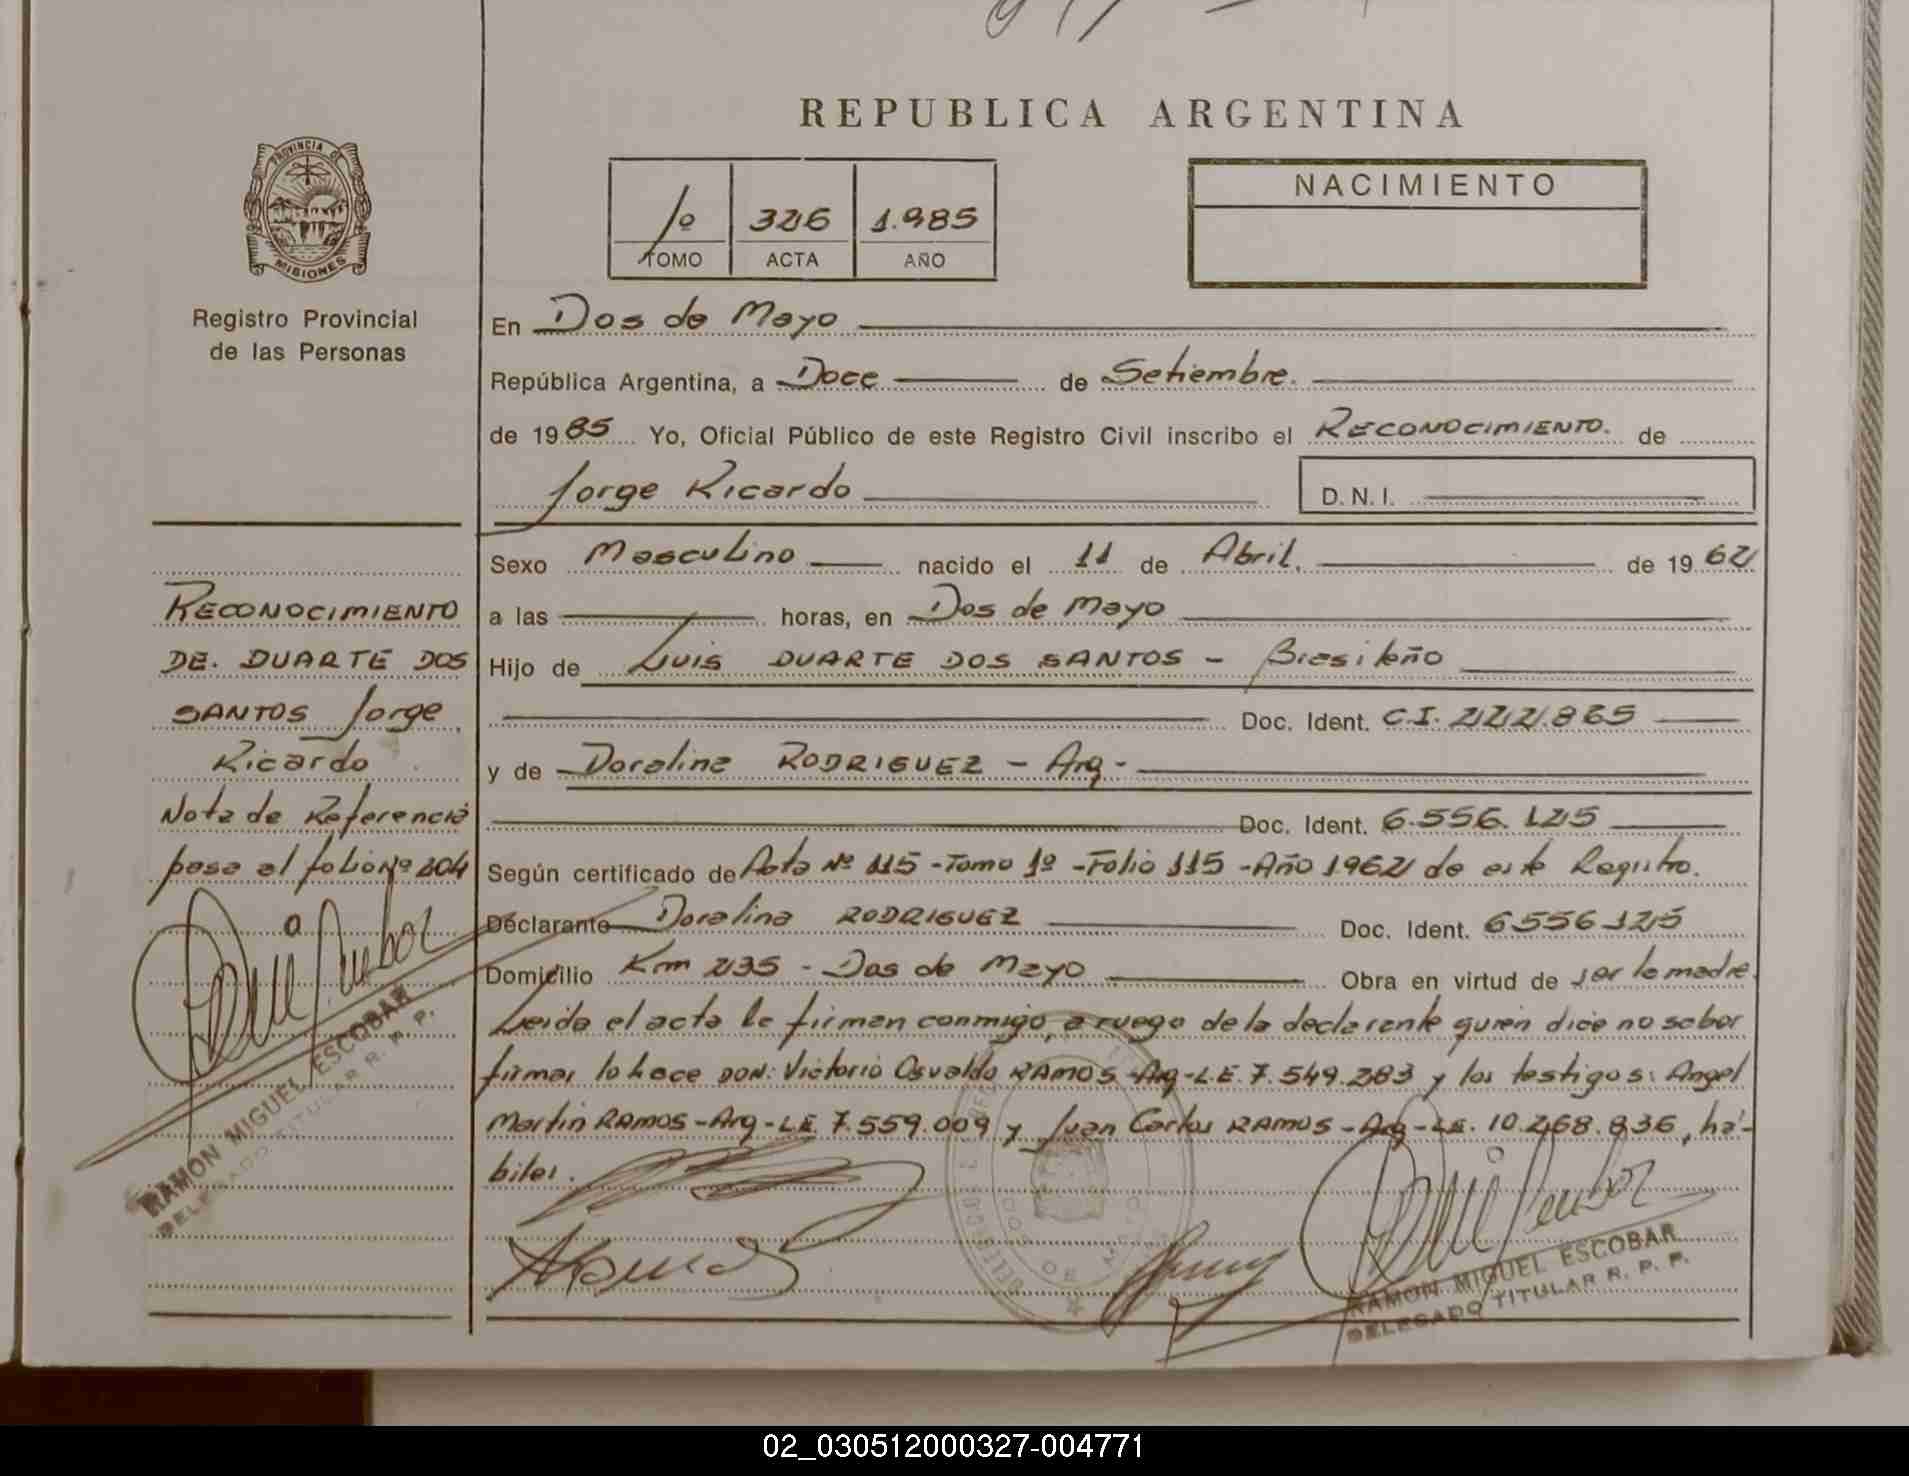 REPUBLICA ARGENTINA
PROVINCIA DE
MISIONES
Registro Provincial
de las Personas
1º 326 1.985
TOMO ACTA AÑO
NACIMIENTO
En Dos de Mayo
República Argentina, a Doce de Setiembre.
de 1985 Yo, Oficial Público de este Registro Civil inscribo el RECONOCIMIENTO. de
Jorge Ricardo D.N.I.
Sexo Masculino nacido el 11 de Abril, de 1962
a las horas, en Dos de Mayo
Hijo de Luis DUARTE DOS SANTOS - Brasileño
Doc. Ident. C.I. 222.865
y de Doralina RODRIGUEZ - Arg -
Doc. Ident. 6.556.125
Según certificado de Acta Nº 115 - Tomo 1º - Folio 115 - Año 1962 de este Registro.
Declarante Doralina RODRIGUEZ Doc. Ident. 6556125
Domicilio Km 235 - Dos de Mayo Obra en virtud de ser la madre.
Leida el acta la firman conmigo, a ruego de la declarante quien dice no saber
firmar lo hace DON: Victorio Osvaldo RAMOS-Arg-L.E. 7.549.283 y los testigos: Angel
Martin RAMOS-Arg-L.E. 7.559.009 y Juan Carlos RAMOS-Arg-L.E. 10.268.836, há-
biles.
RECONOCIMIENTO
DE. DUARTE DOS
SANTOS Jorge
Ricardo
Nota de Referencia
pasa al folio Nº 204
RAMON MIGUEL ESCOBAR
DELEGADO TITULAR R. P. P.
RAMON MIGUEL ESCOBAR
DELEGADO TITULAR R. P. P.
02_030512000327-004771